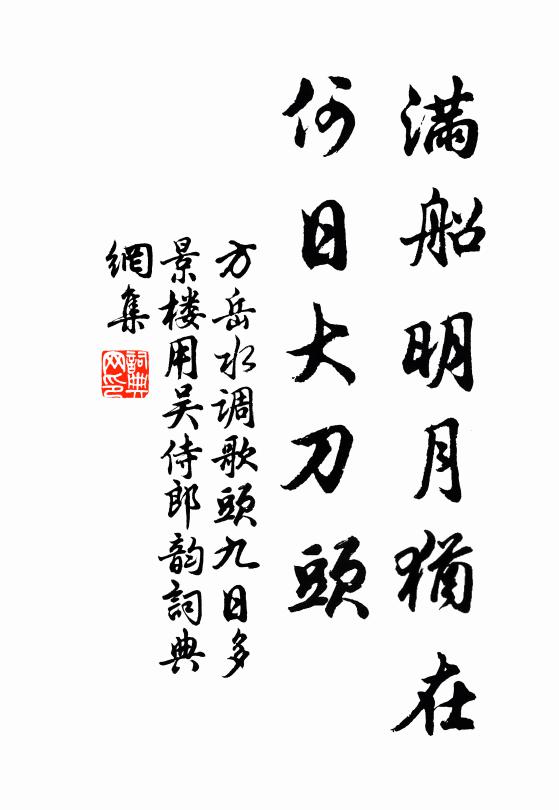 滿船明月猶在
何日大刀頭
方岳水调歌頭九日多
景楼用吴侍郎韵詞典
網集
詞典
网印